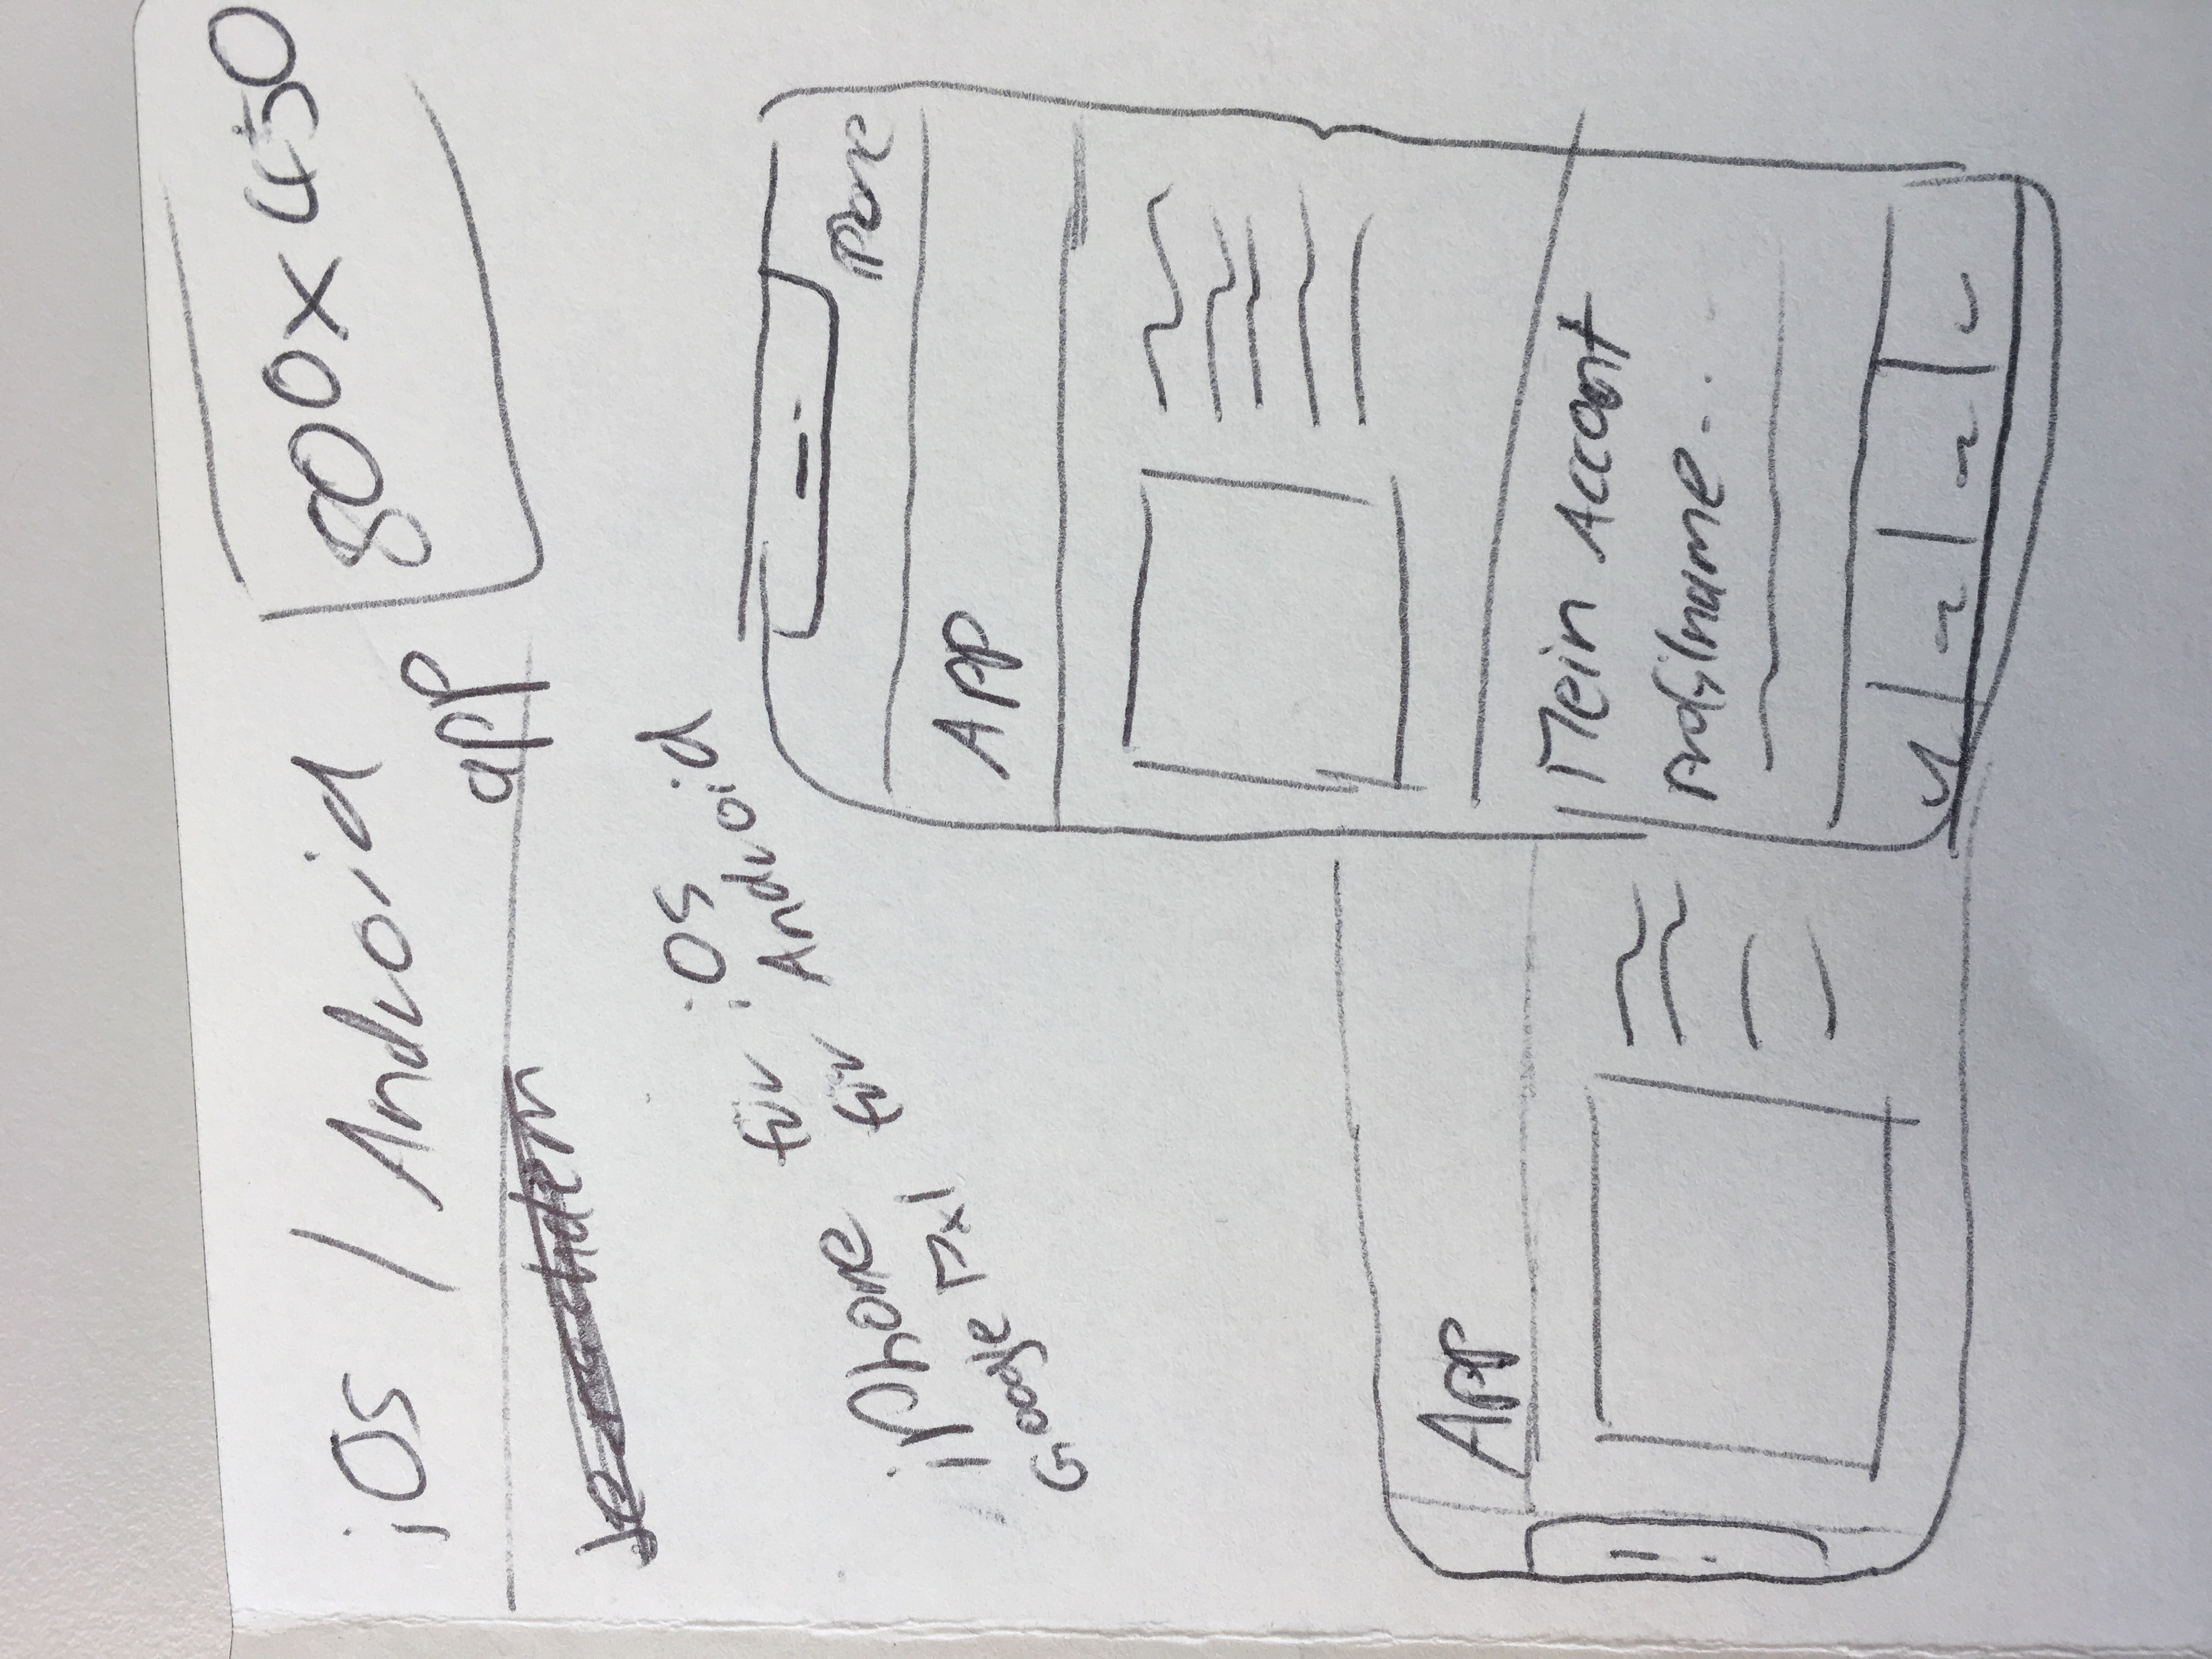 iOS / Android
app
800x450
Je nachdem
iPhone für iOS
Google Pxl für Android
iPone
App
Mein Account
Profilname...
App